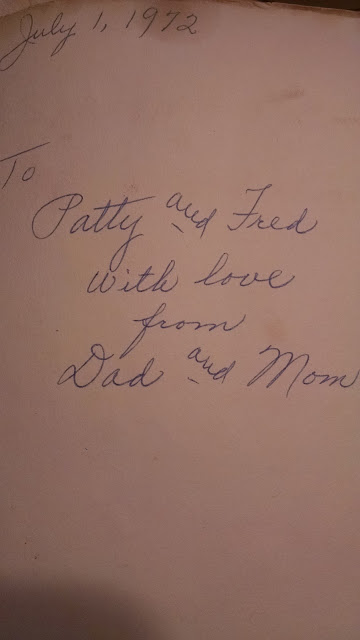 July 1, 1972
To
Patty and Fred
With love
from
Dad and Mom